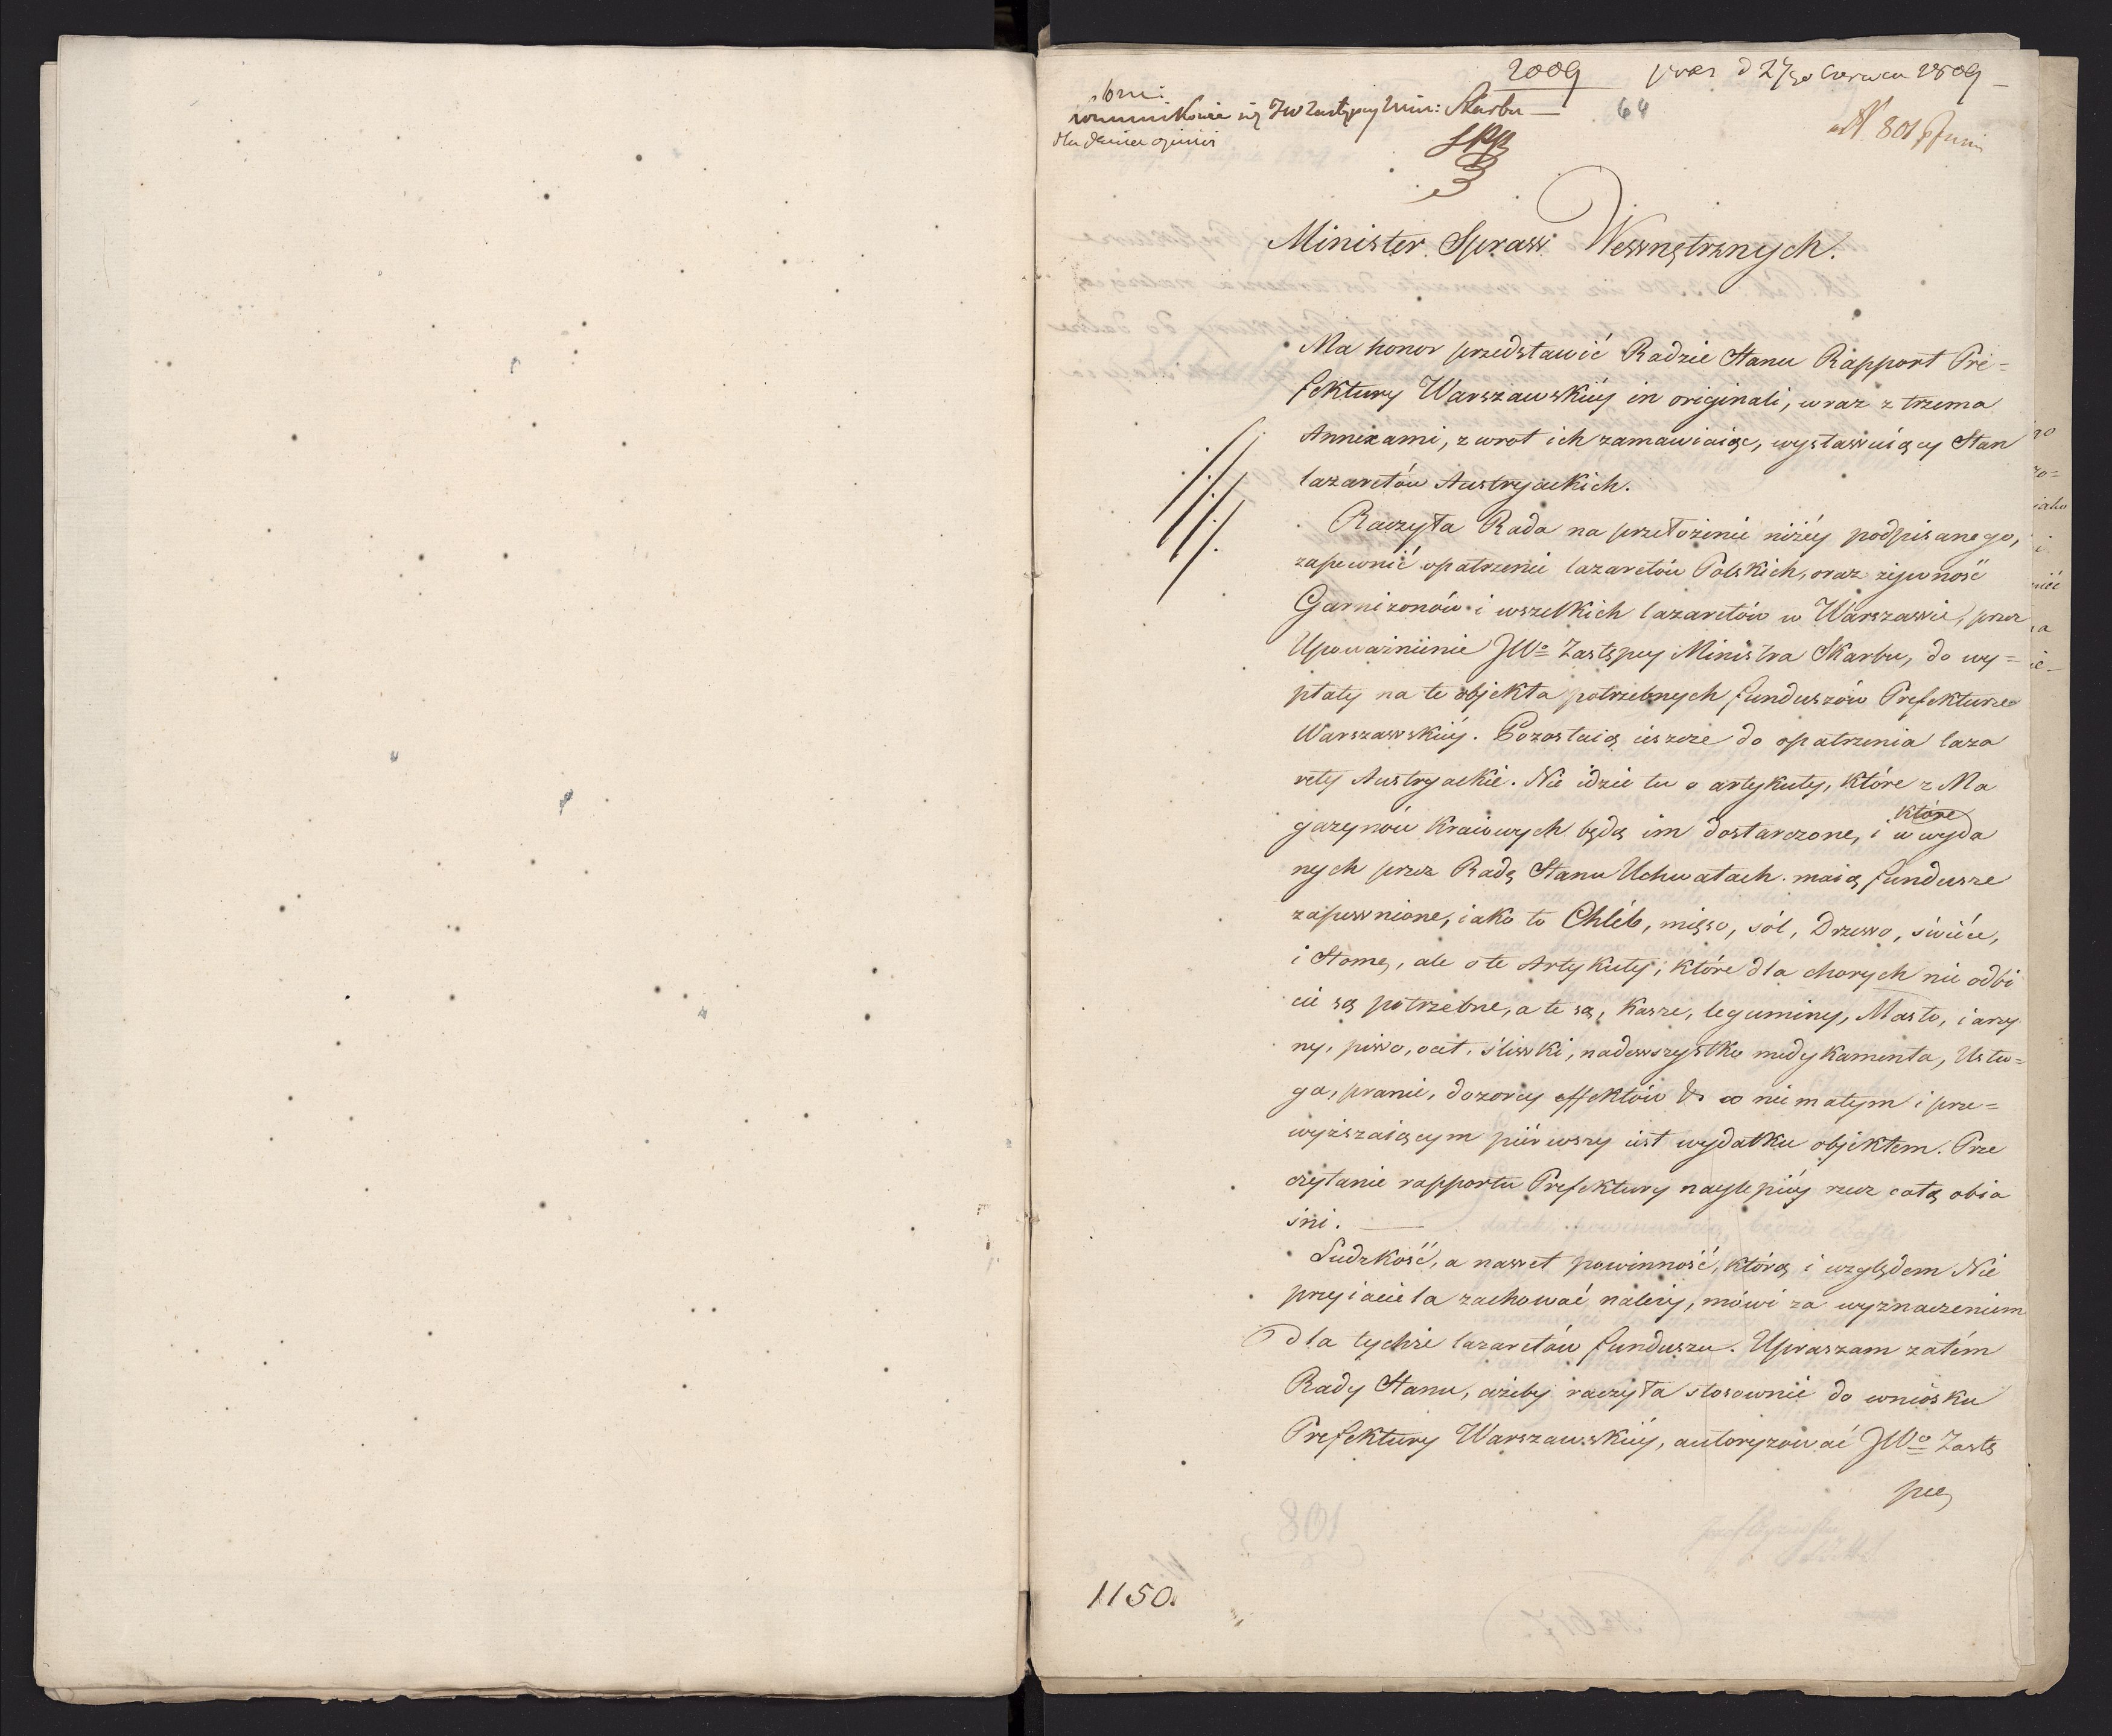 2009 prez d 27go Czerwca 1809
64
N 801
kommunikuie się JW Zastępcy Min: Skarbu —
dla dania opinii
Minister Spraw Wewnętrznych.
Ma honor przedstawić Radzie Stanu Rapport Pre=
fektury Warszawskiey in originali, wraz z trzema
Annexami, zwrot ich zamawiaiąc, wystawuiący Stan
lazaretów Austryackich.
Raczyła Rada na przełożenie niżéy podpisanego,
zapewnić opatrzenie lazaretów Polskich, oraz żywność
Garnizonów i wszelkich lazaretów w Warszawie, przez
Upoważnienie JWo Zastępcy Ministra Skarbu, do wy=
płaty na te objekta potrzebnych funduszów Prefekturze
Warszawskiéy. Pozostaią ieszcze do opatrzenia laza
rety Austryackie. Nie idzie tu o artykuły, które z Ma
gazynów Kraiowych będą im dostarczone, i które w wyda
nych przez Radę Stanu Uchwałach maią fundusze
zapewnione, iako to Chléb, mięso, sól, Drzewo, świéce,
i Słomę, ale o te Artykuły, które dla chorych nie odbi
cie są potrzebne, a te są, Kasze, leguminy, Masło, iarzy
ny, piwo, ocet, śliwki, nadewszystko medykamenta, Usłu=
ga, pranie, dozorcy effektów & co nie małym i prze=
wyższaiącym piérwszy iest wydatku objektem. Prze
czytanie rapportu Prefektury naylepiéy rzecz całą obia
śni. —
Ludzkość, a nawet powinność, którą i względem Nie
przyiaciela zachować należy, mówi za wyznaczeniem
dla tychże lazaretów funduszu. Upraszam zatém
Rady Stanu, ażeby raczyła stosownie do wniosku
Prefektury Warszawskiéy, autoryzować JWo Zastę
pcę
1150.